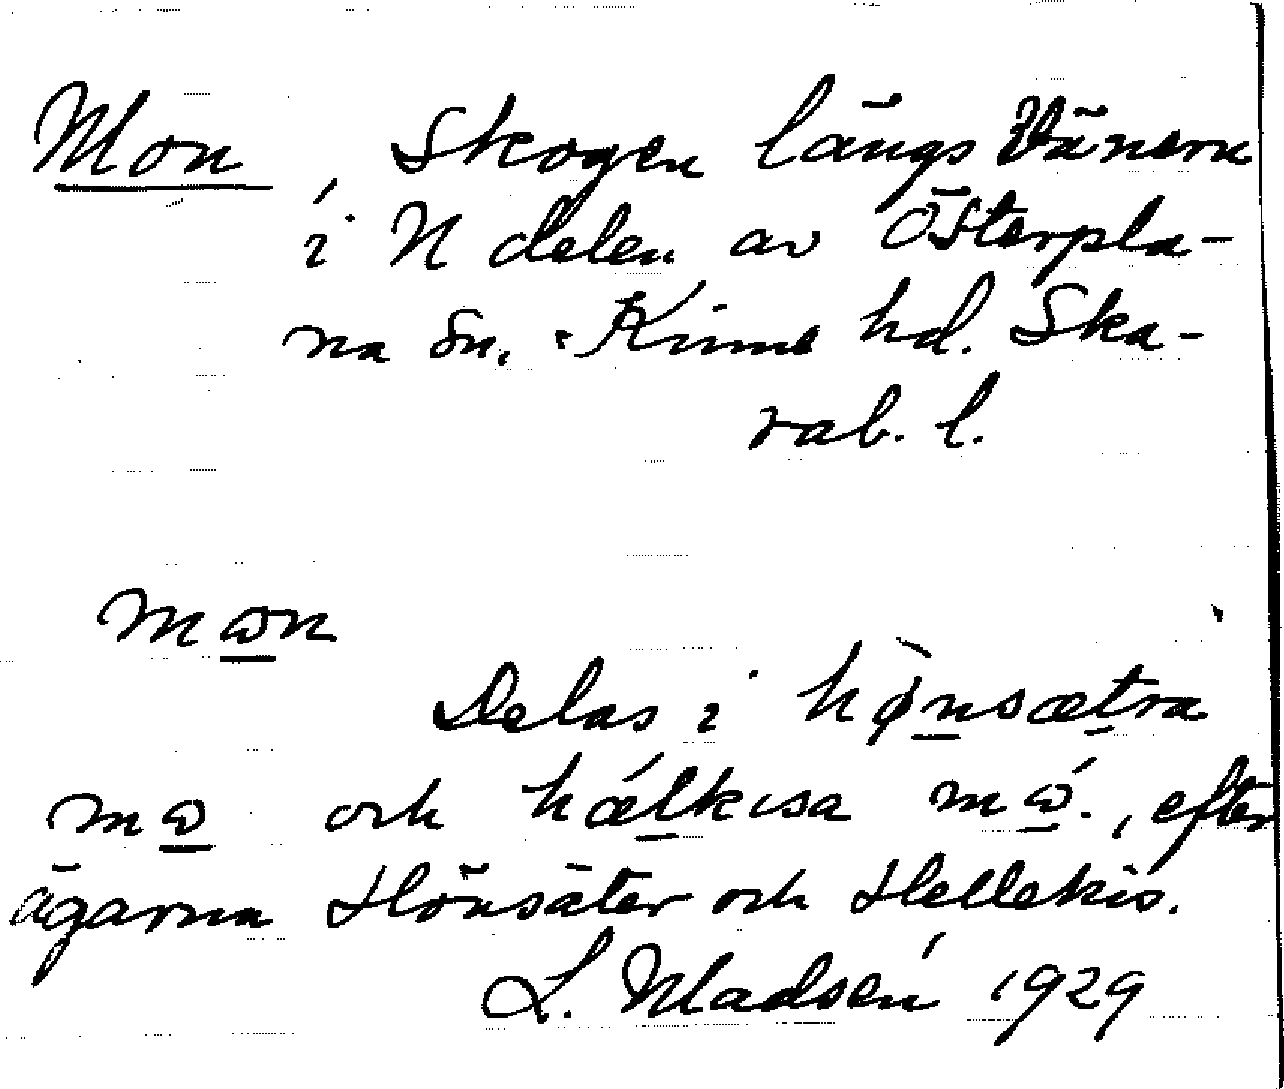 Mon, Skogen längs Vänern
i N delen av Österpla-
na sn. Kinne hd. Ska-
rab. l.
mɷn
Delas i hø̀nsætra
mɷ och hǽlkisa mɷ́., efter
ägarna Hönsäter och Hellekis.
L. Madsén 1929